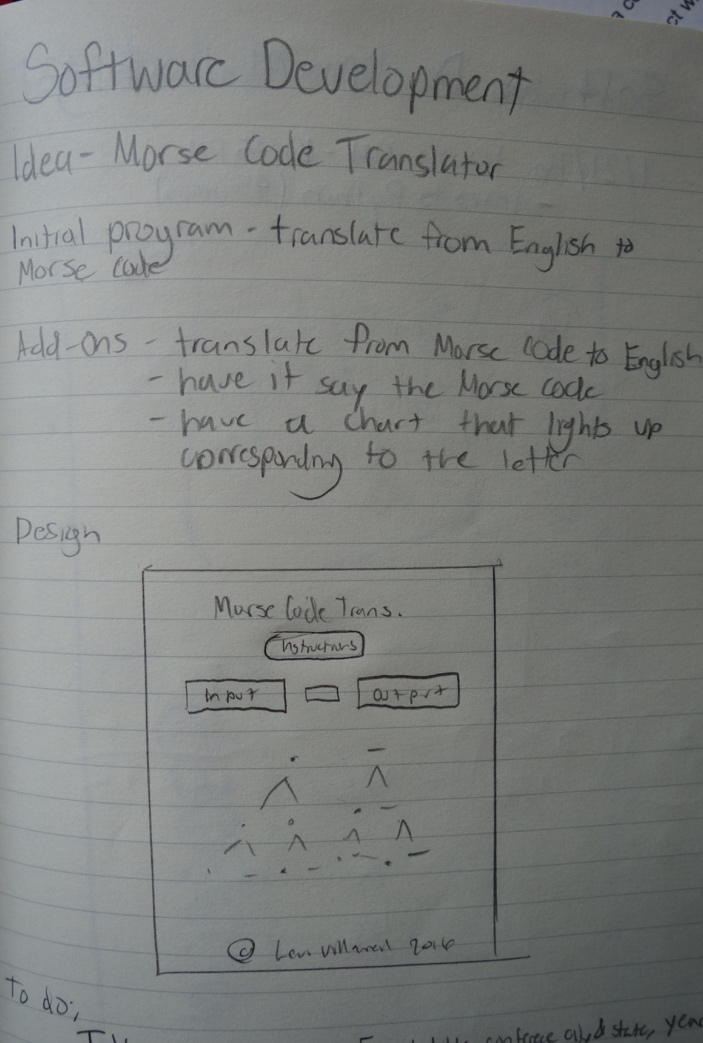 Software Development
Idea - Morse Code Translator
Initial program - translate from English to
Morse code
Add-ons - translate from Morse code to English
- have it say the Morse code
- have a chart that lights up
corresponding to the letter
Design
Morse Code Trans.
Instructions
Input
output
© 2016
To do:
conference
state, year